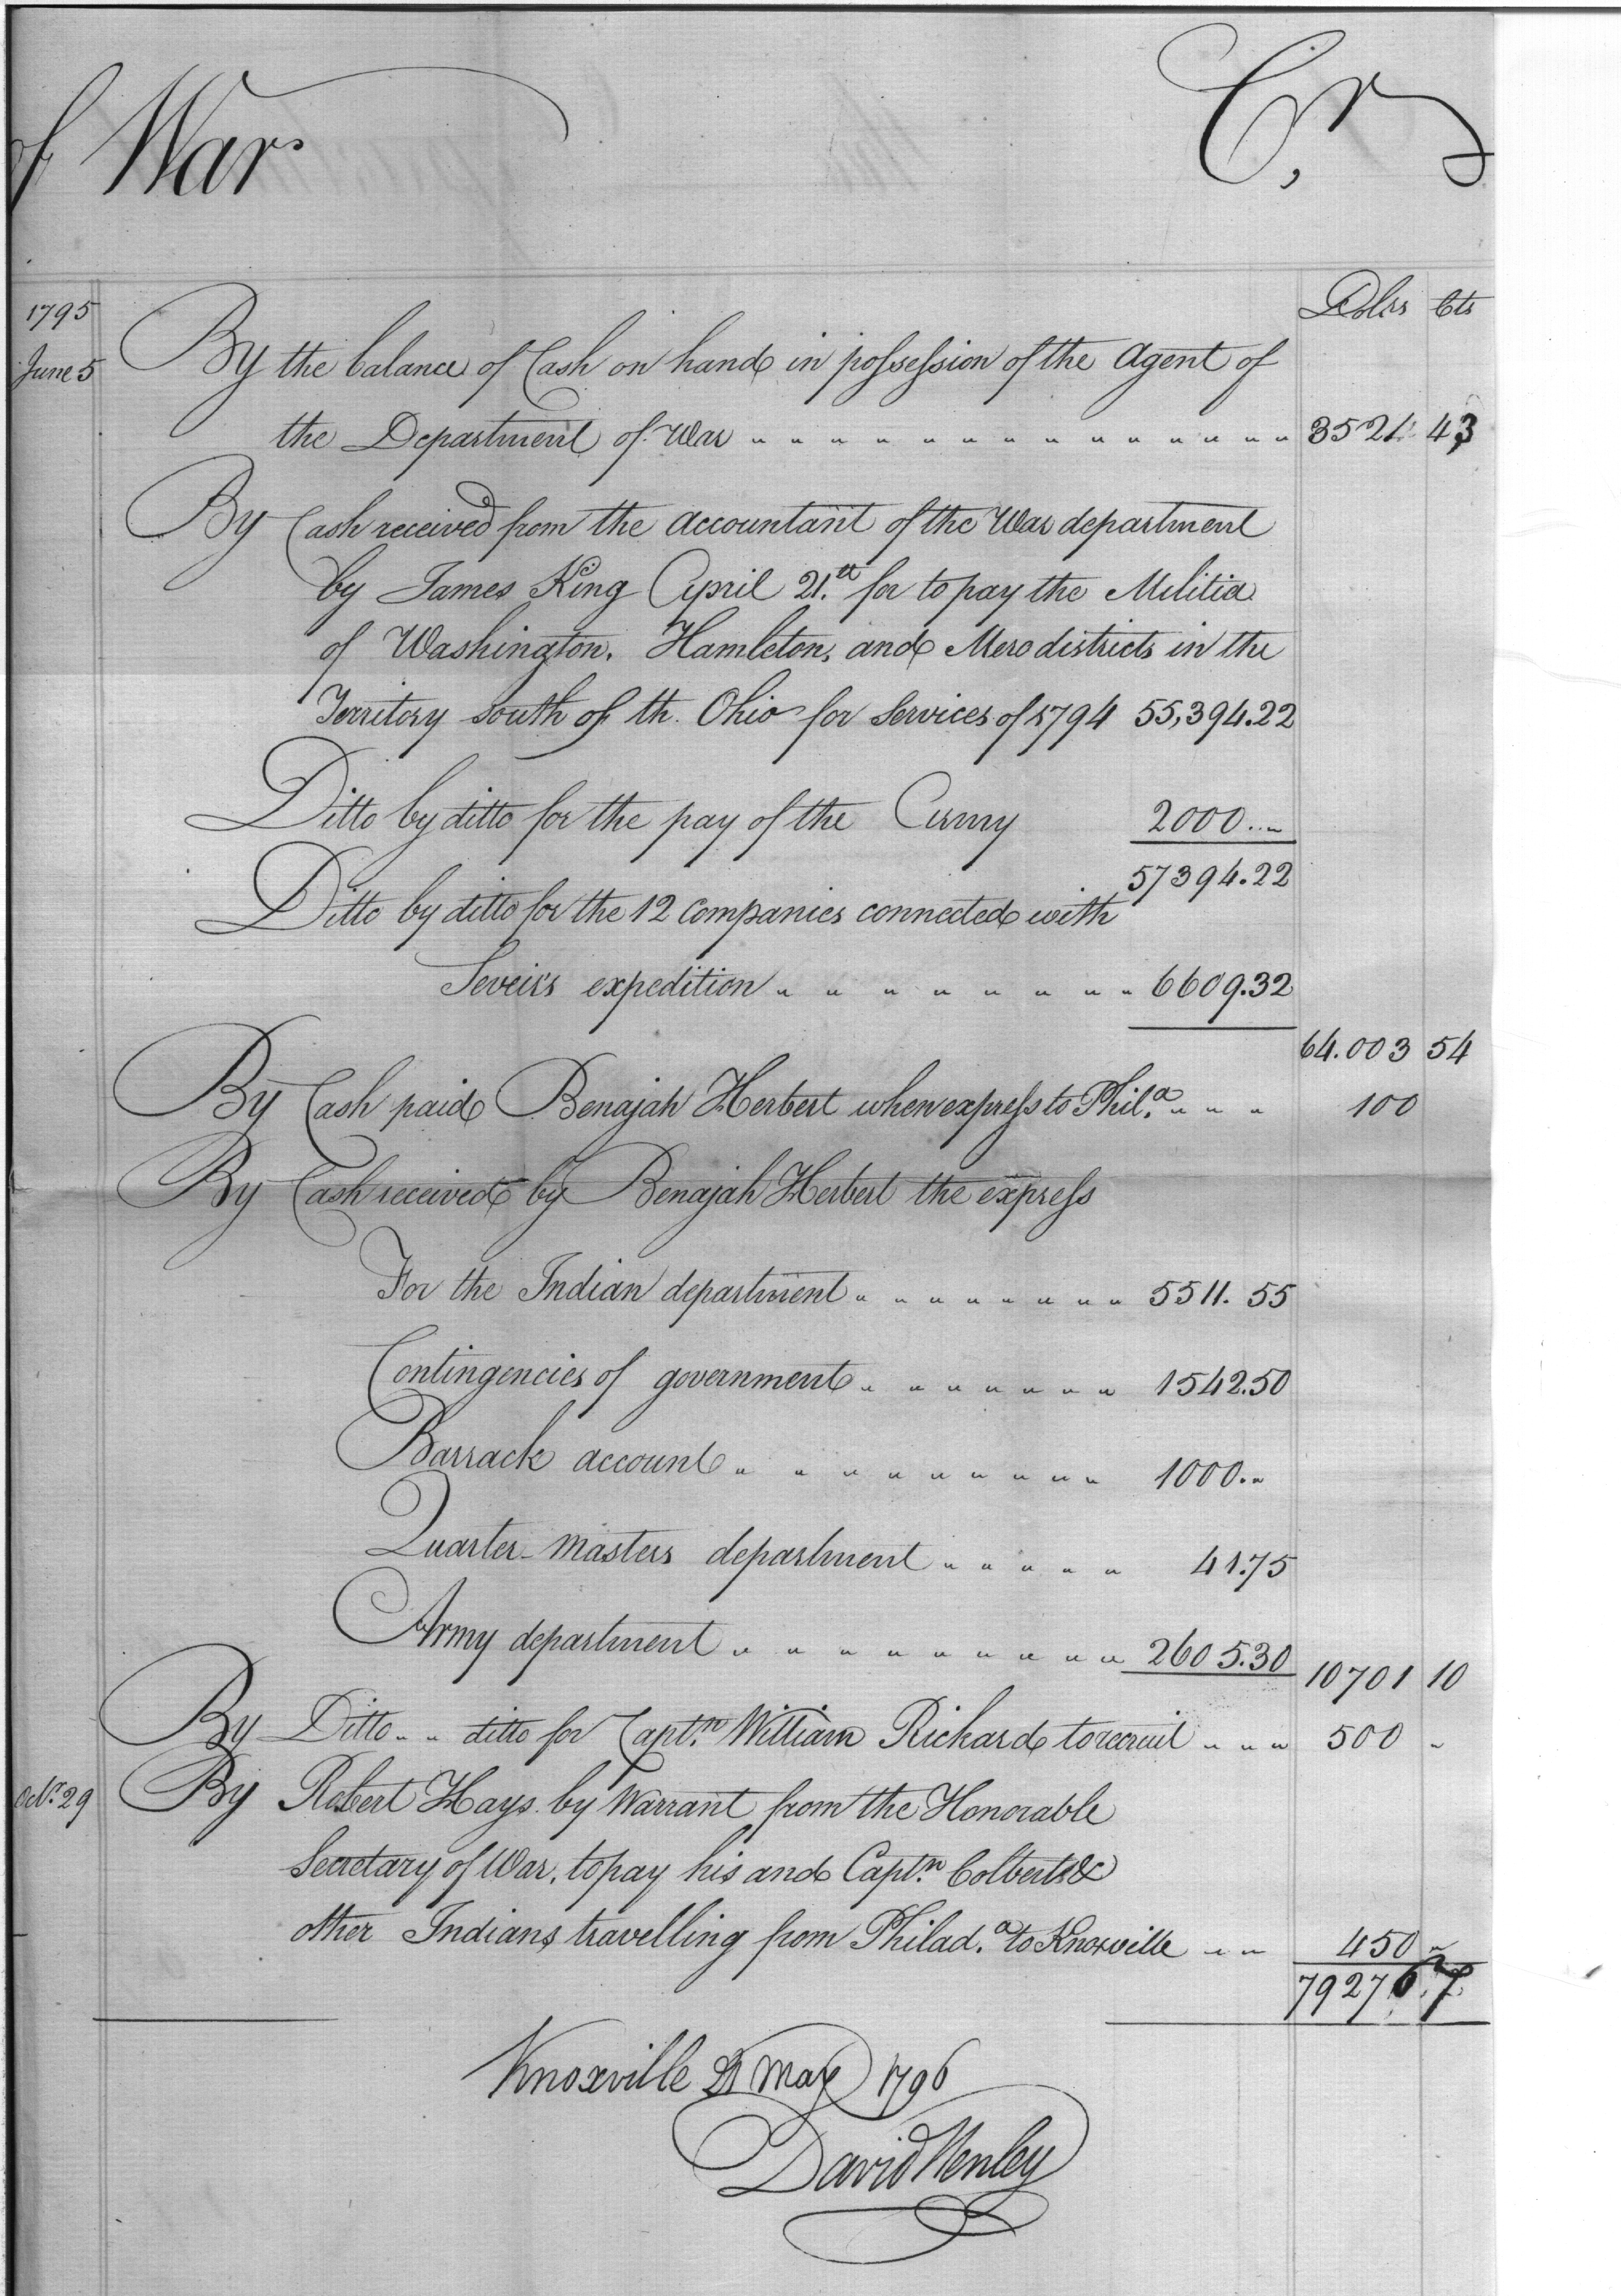 of War
Cr
Dolrs Cts
1795
June 5 By the balance of Cash on hand in possession of the Agent of
the Department of War 3521 43
By Cash received from the accountant of the War department
by James King April 21.st for to pay the Militia
of Washington, Hamleton, and Mero districts in the
Territory South of th. Ohio for Services of 1794 55,394.22
Ditto by ditto for the pay of the Army 2000..
57394.22
Ditto by ditto for the 12 Companies connected with
Seveirs expedition 6609.32
64.003 54
By Cash paid Benajah Herbert when express to Phil.a 100
By Cash received by Benajah Herbert the express
For the Indian department 5511.55
Contingencies of government 1542.50
Barrack account 1000..
Quarter-Masters department 41.75
Army department 2605.30 10701 10
By Ditto ditto for Capt.n William Rickard to recruit 500
Oct.r 29 By Robert Hays by Warrant from the Honorable
Secretary of War, to pay his and Capt.n Colberts &
other Indians travelling from Philad.a to Knoxville 450
79276 7
Knoxville 21 May 1796
David Henley